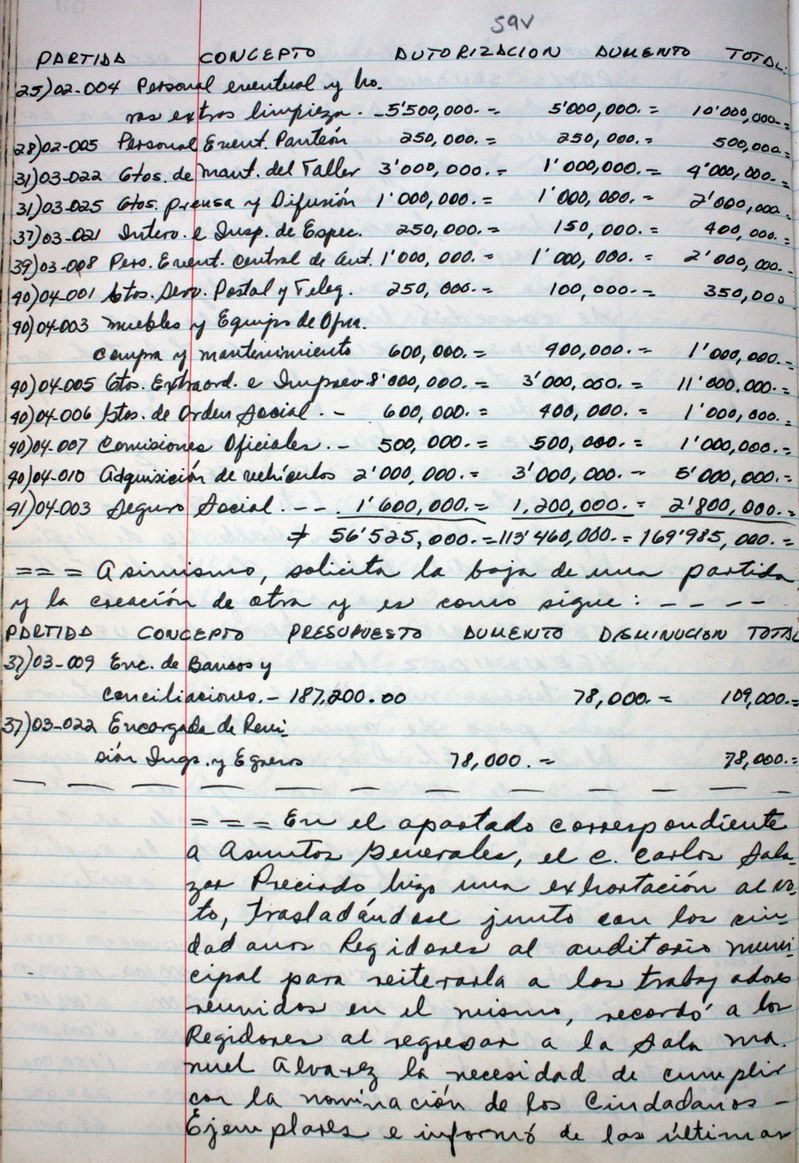 59V
PARTIDA CONCEPTO AUTORIZACION AUMENTO TOTAL.
25)02-004 Personal eventual y ho-
ras extras limpieza. - 5'500,000.= 5'000,000.= 10'000,000.=
28)02-005 Personal Event. Panteón 250,000.= 250,000.= 500,000.=
31)03-022 Gtos. de Mant. del Taller 3'000,000.= 1'000,000.= 4'000,000.=
31)03-025 Gtos. prensa y Difusión 1'000,000.= 1'000,000.= 2'000,000.=
37)03-021 Interv. e Insp. de Espec. 250,000.= 150,000.= 400,000.=
39)03-008 Pers. Event. Central de Aut. 1'000,000.= 1'000,000.= 2'000,000.=
40)04-001 Gtos. Serv. Postal y Teleg. 250,000.= 100,000.= 350,000
40)04-003 Muebles y Equipo de Ofna.
compra y mantenimiento 600,000.= 400,000.= 1'000,000.=
40)04-005 Gtos. Extraord. e Imprev. 8'000,000.= 3'000,000.= 11'000,000.=
40)04-006 Gtos. de Orden Social. - 600,000.= 400,000.= 1'000,000.=
40)04-007 Comisiones Oficiales. - 500,000.= 500,000.= 1'000,000.=
40)04-010 Adquisición de vehículos 2'000,000.= 3'000,000.- 5'000,000.=
41)04-003 Seguro Social. - - . 1'600,000.= 1,200,000.= 2'800,000.=
56'525,000.= 113'460,000.= 169'985,000.=
= = = Asimismo, solicita la baja de una partida
y la creación de otra y es como sigue: - - - -
PARTIDA CONCEPTO PRESUPUESTO AUMENTO DISMINUCION TOTAL
37)03-009 Enc. de Bancos y
conciliaciones. - 187,200.00 78,000.= 109,000.=
37)03-022 Encargada de Revi-
sión Ings. y Egresos 78,000.= 78,000.=
= = = En el apartado correspondiente
a Asuntos Generales, el C. Carlos Sala-
zar Preciado hizo una exhortación al vo-
to, trasladándose junto con los ciu-
dadanos Regidores al auditorio muni-
cipal para reiterarla a los trabajadores
reunidos en el mismo, recordó a los
Regidores al regresar a la Sala Ma-
nuel Alvarez la necesidad de cumplir
con la nominación de los Ciudadanos -
Ejemplares e informó de las últimas